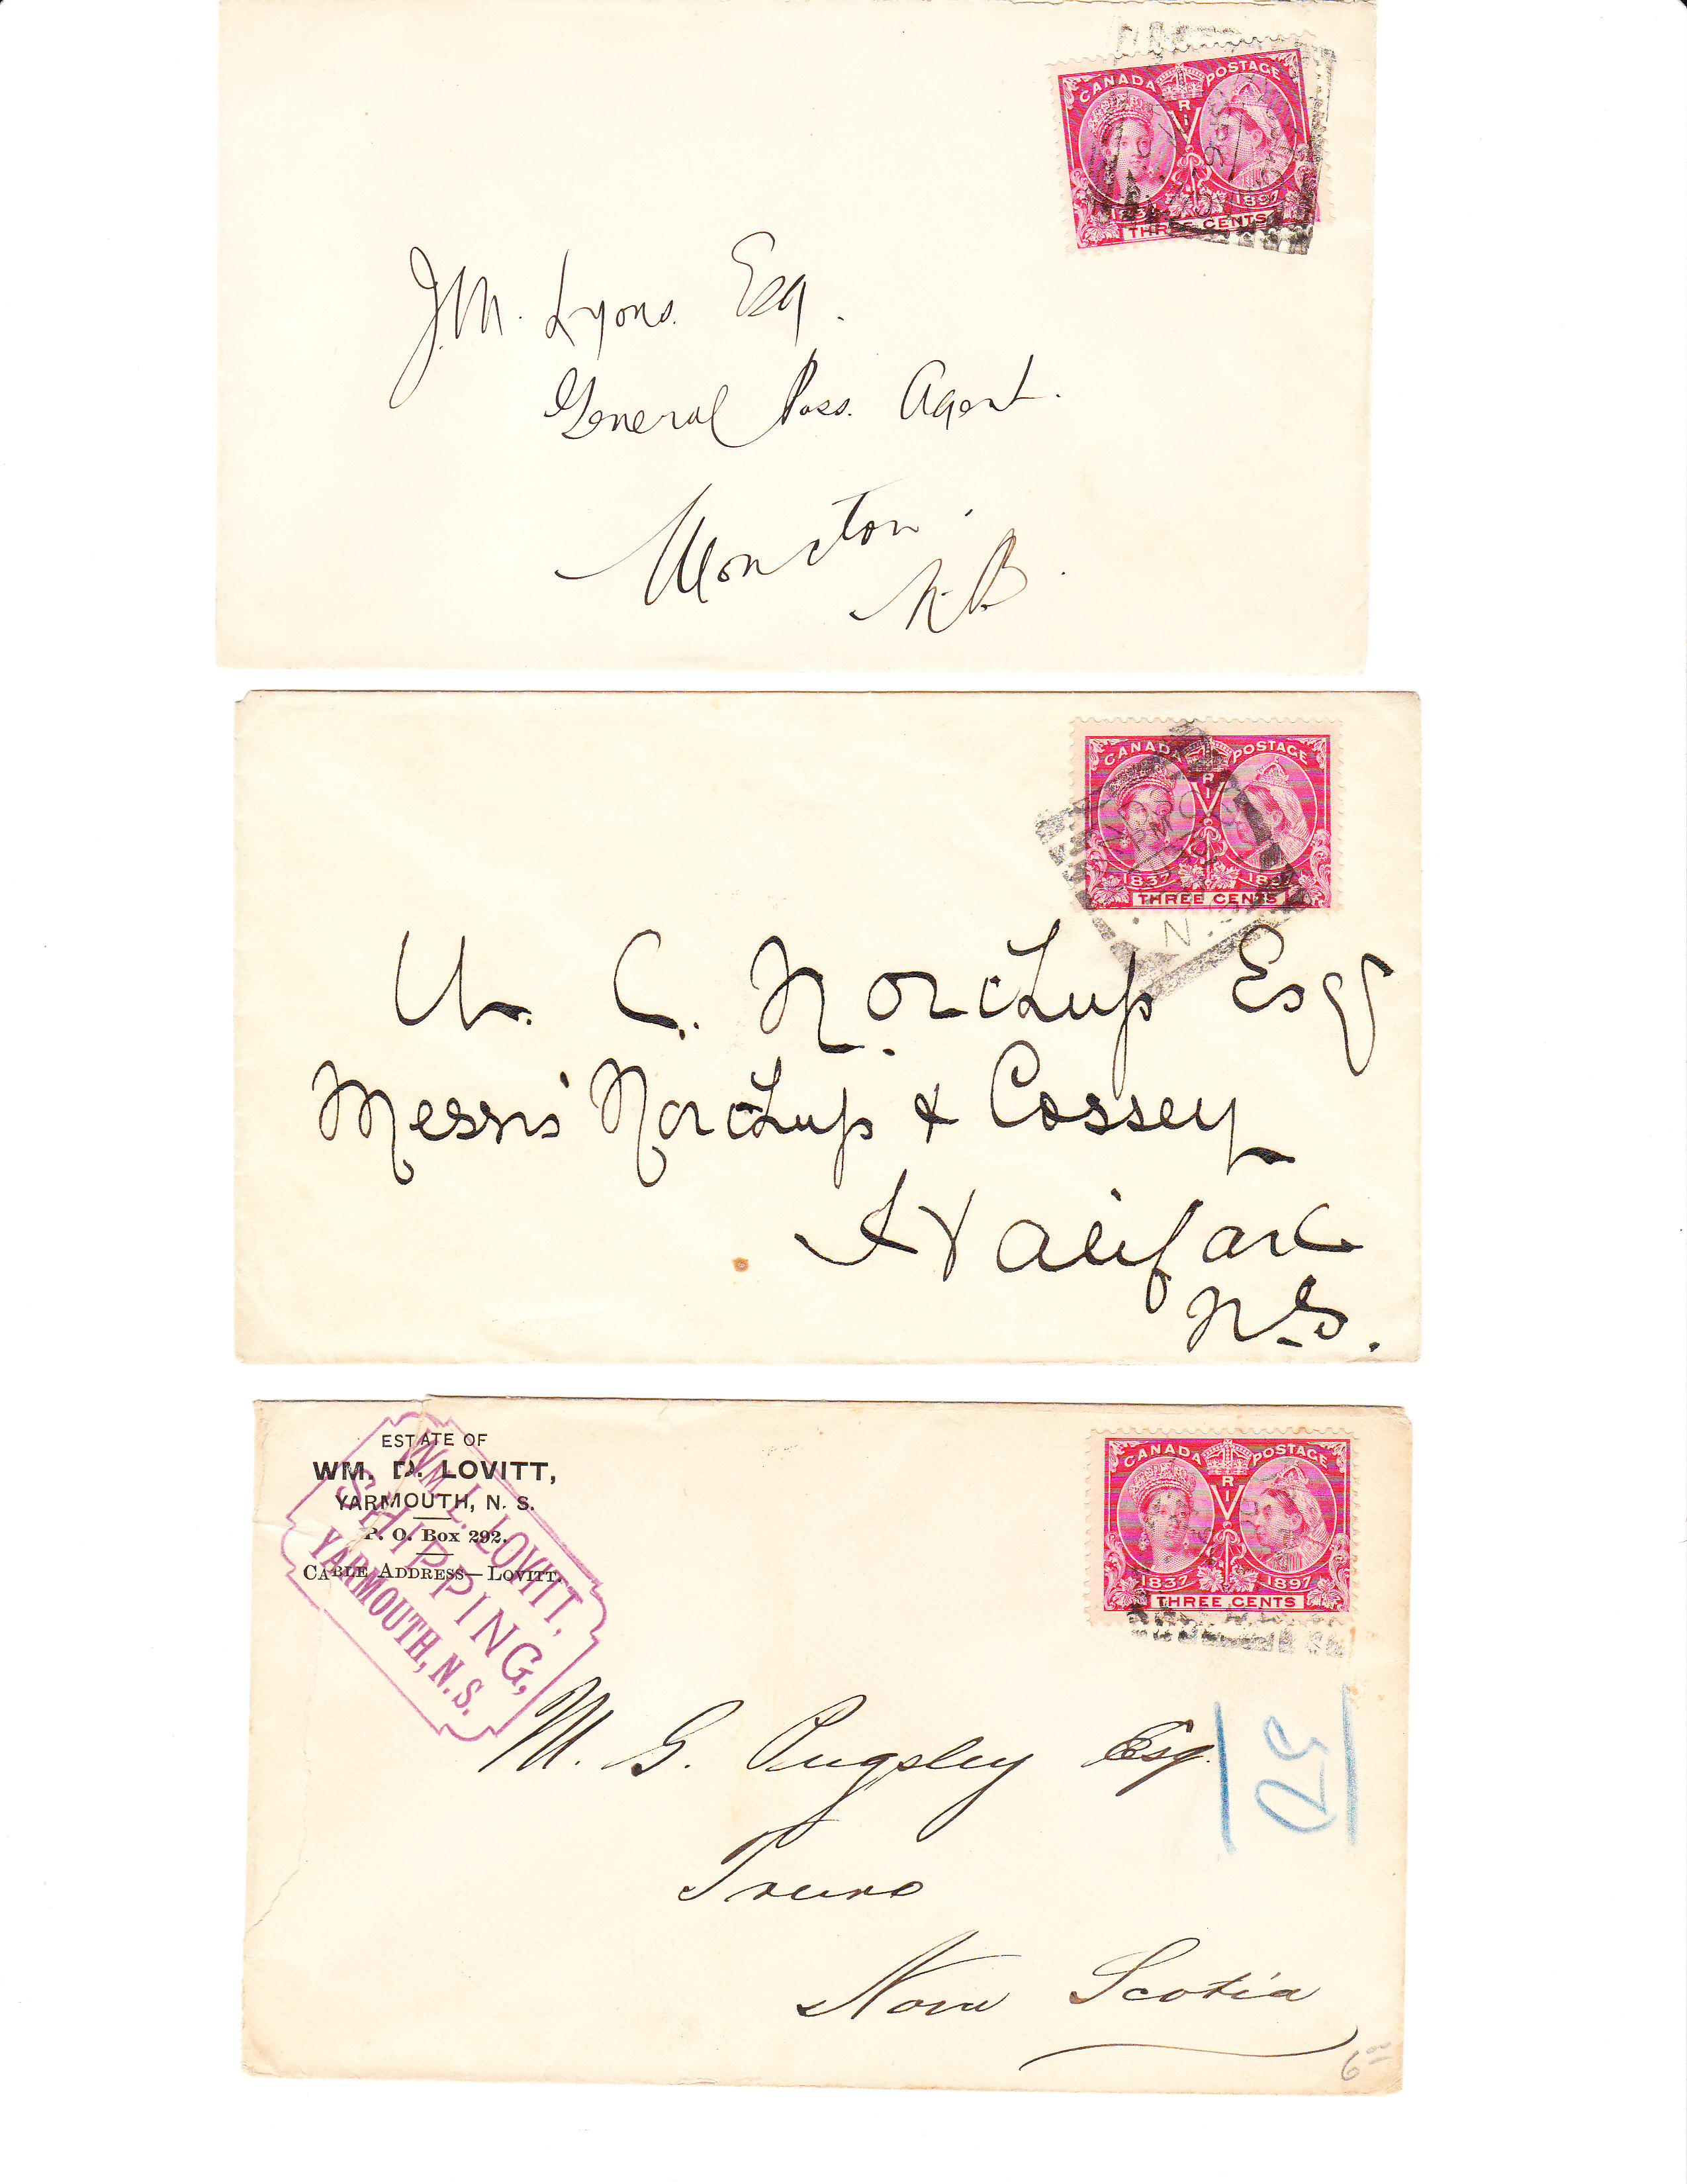 CANADA POSTAGE
V R I
1837 1897
THREE CENTS
J.M. Lyons. Esq.
General Pass. Agent.
Moncton.
N.B.
CANADA POSTAGE
V R I
1837 1897
THREE CENTS
WINDSOR
PM
N.S
W. C. Northup Esq
Messrs Northup & Cossey
Halifax
N.S.
ESTATE OF
WM. D. LOVITT,
YARMOUTH, N. S.
P. O. Box 292.
CABLE ADDRESS—LOVITT.
WM. L. LOVITT,
SHIPPING,
YARMOUTH, N.S.
CANADA POSTAGE
V R I
1837 1897
THREE CENTS
M. G. Pugsley Esq.
Truro
Nova Scotia
50
6.00